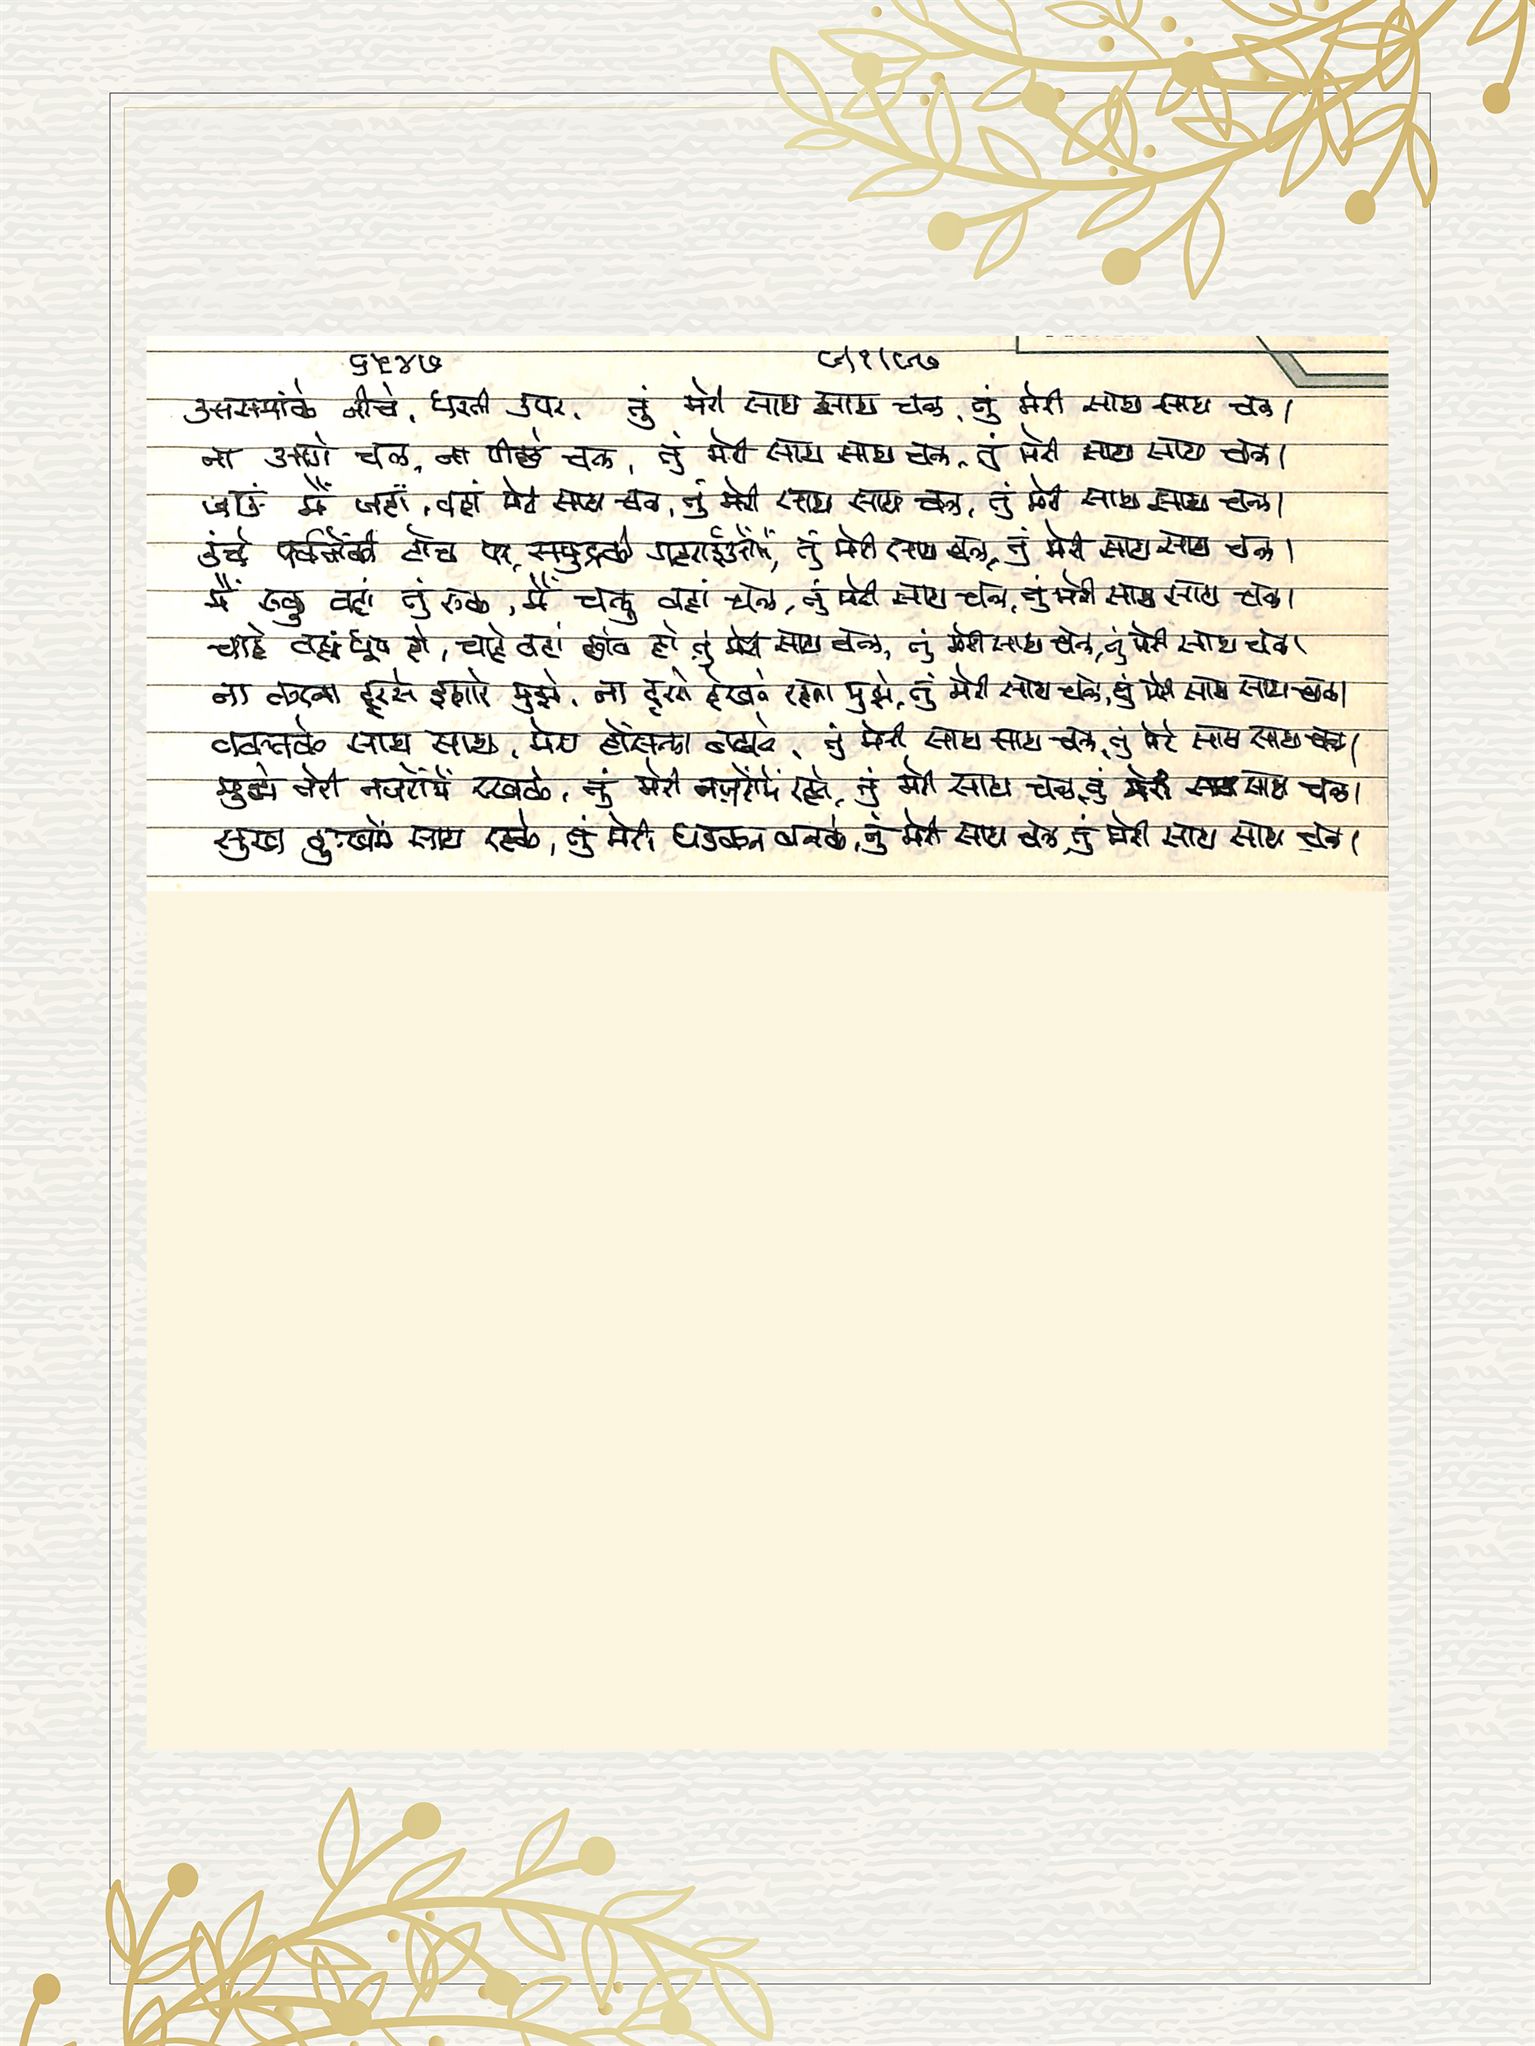 ६५४७ ८/१/८७
आसमांके नीचे, धरती उपर, तुं मेरी साथ साथ चल, तुं मेरी साथ साथ चल।
ना आगे चल, ना पीछे चल, तुं मेरी साथ साथ चल, तुं मेरी साथ साथ चल।
जाउं मैं जहाँ, वहां मेरी साथ चल, तुं मेरी साथ साथ चल, तुं मेरी साथ साथ चल।
उंचे पर्वतोंकी टोंच पर, समुद्रकी गहराईओंमें, तुं मेरी साथ चल, तुं मेरी साथ साथ चल।
मैं रुकु वहां तुं रुक, मैं चलु वहां चल, तुं मेरी साथ चल, तुं मेरी साथ साथ चल।
चाहे वहां धूप हो, चाहे वहां छांव हो तुं मेरी साथ चल, तुं मेरी साथ चल, तुं मेरी साथ चल।
ना करना दूरसे इशारे मुझे, ना दूरसे देखते रहना मुझे, तुं मेरी साथ चल, तुं मेरी साथ साथ चल।
वक्तके साथ साथ, मेरा हौंसला बढाने, तुं मेरी साथ साथ चल, तुं मेरे साथ साथ चल।
मुझे तेरी नजरोंमें रखके, तुं मेरी नजरोंमें रहके, तुं मेरी साथ चल, तुं मेरी साथ साथ चल।
सुख दुःखमें साथ रहके, तुं मेरी धडकन बनके, तुं मेरी साथ चल, तुं मेरी साथ साथ चल।